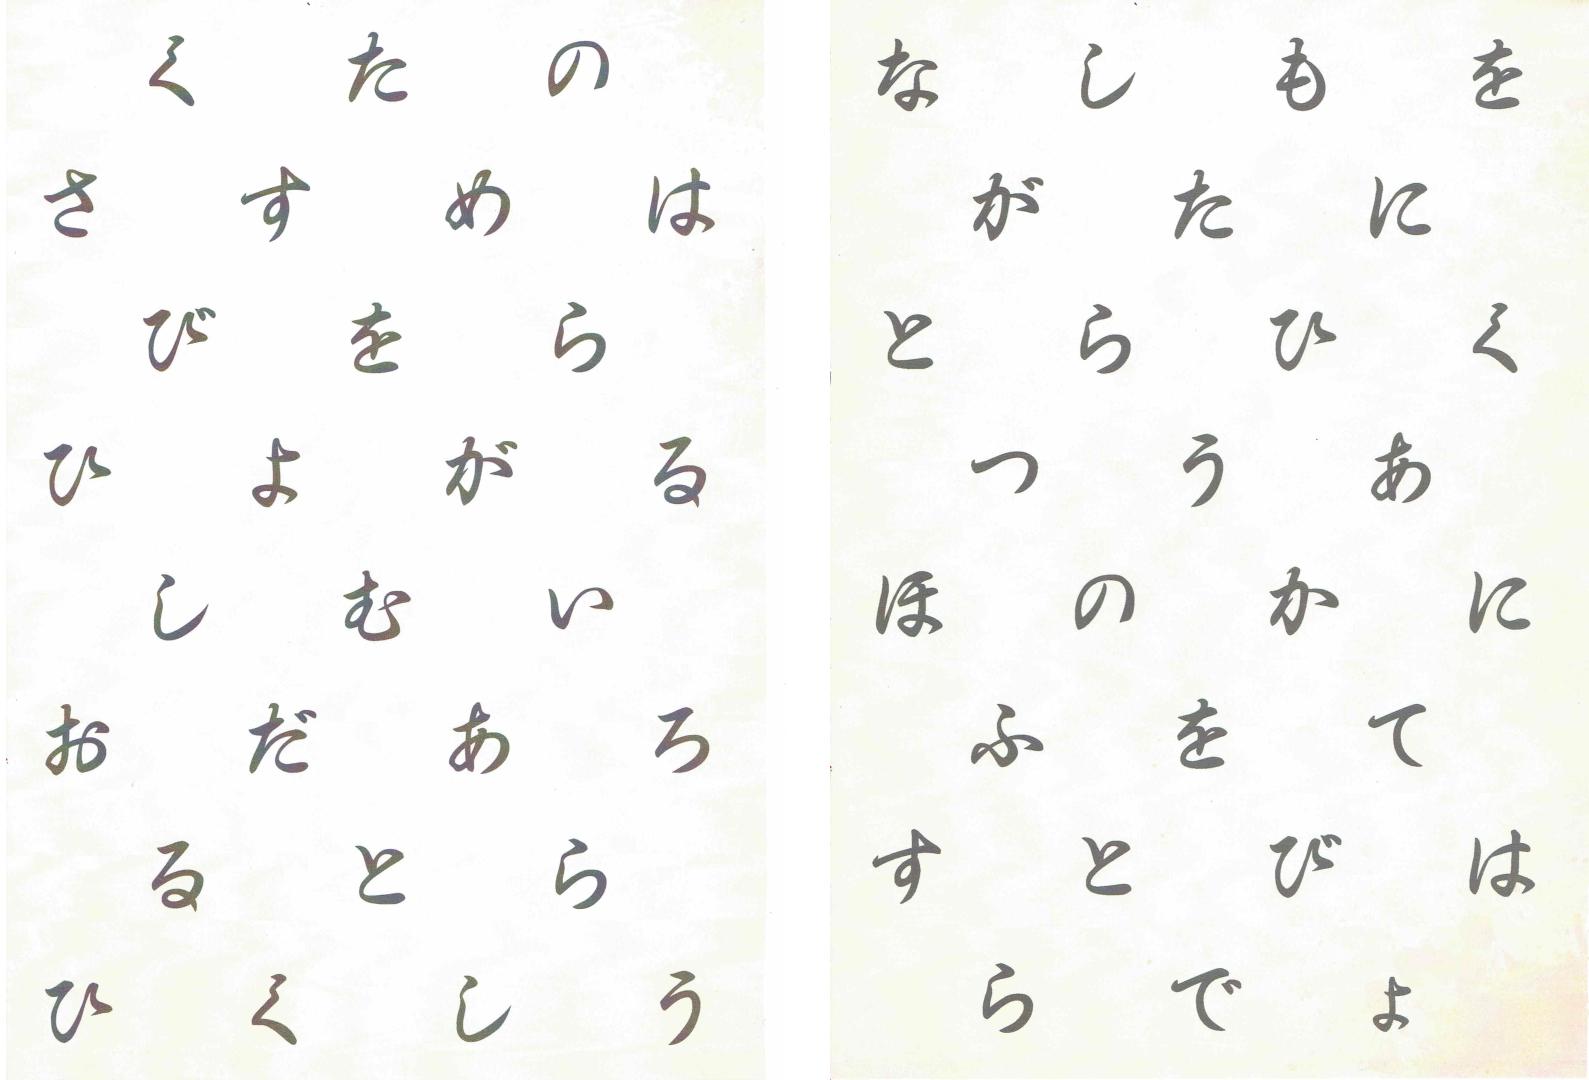 くたの
さすめは
びをら
ひよがる
しむい
おだあろ
るとら
ひくしう
なしもを
がたに
とらひく
つうあ
ほのかに
ふをて
すとびは
らでょ